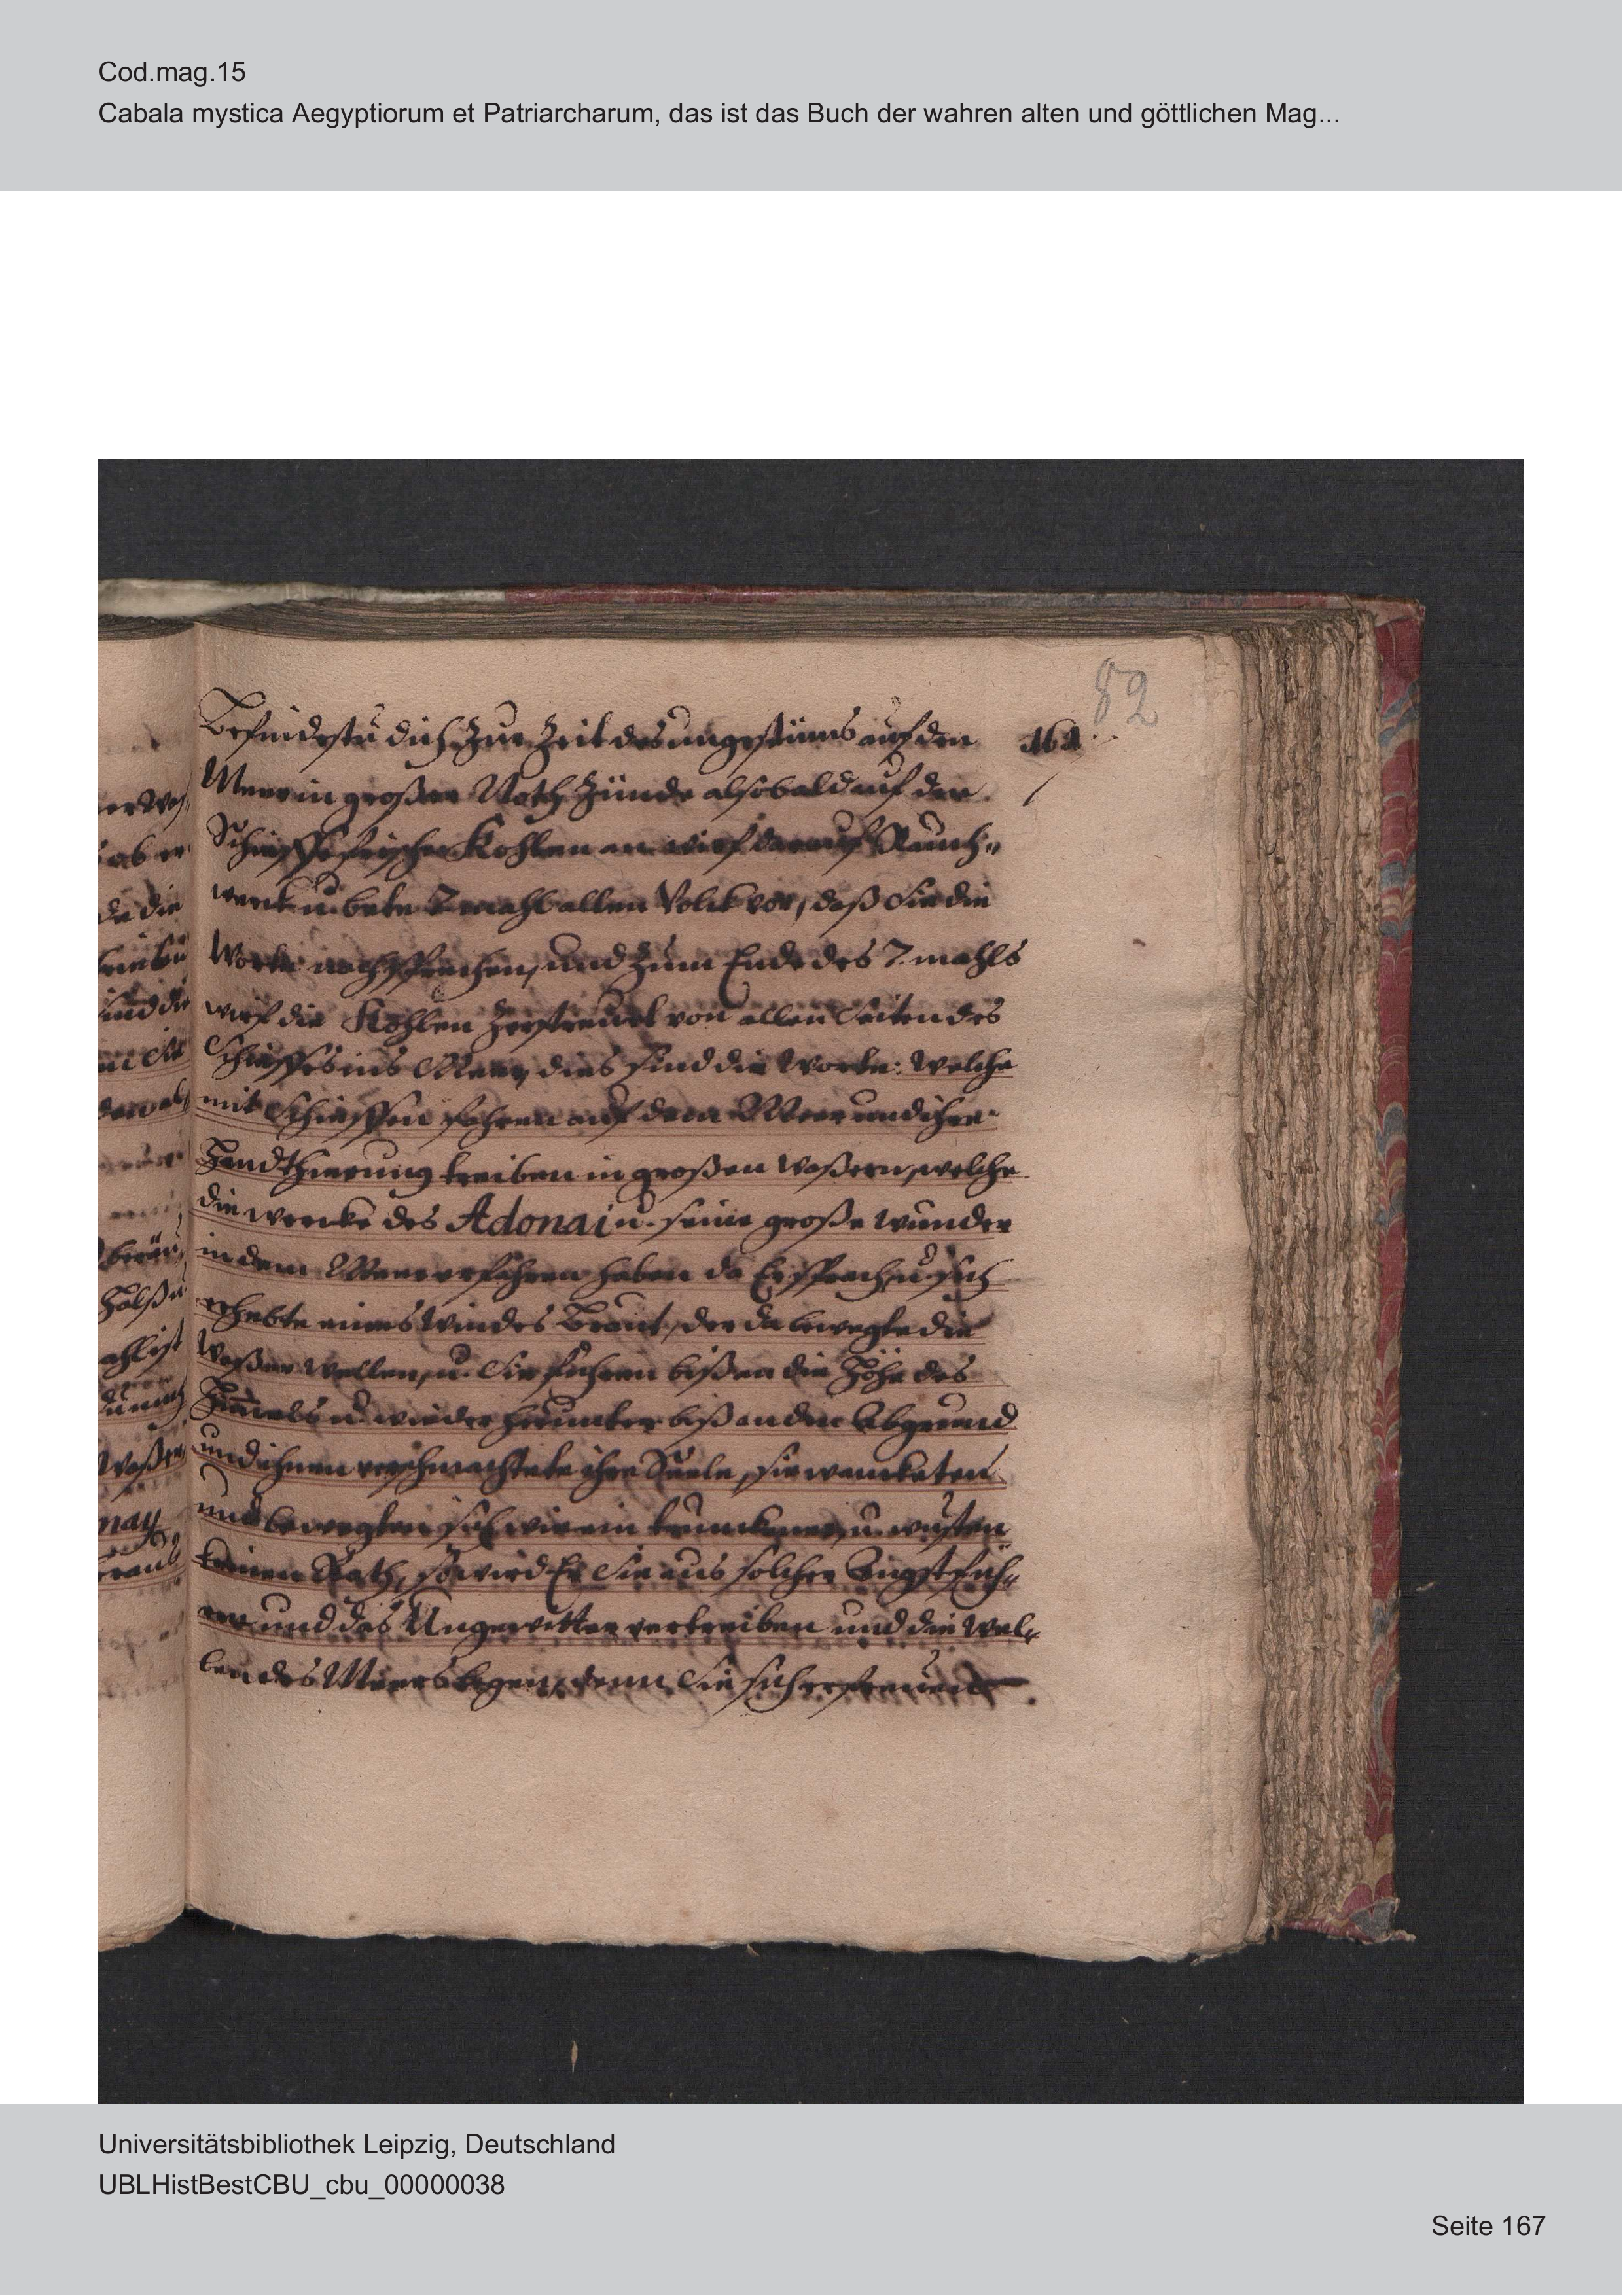 Cod.mag.15
Cabala mystica Aegyptiorum et Patriarcharum, das ist das Buch der wahren alten und göttlichen Mag...
82
Befindestu dich zur Zeit des ungestüms auf den
161
Meer in großer Noth, Zünde alsobald auf der
Schieffe frische Kohlen an, wirf darauf Rauch-
werk u. bete 7 mahl allen Volck vor, daß Sie die
Worte nachsprechen, und zum Ende des 7. mahls
wirf die Kohlen zerstreuet von allen Seiten des
Schieffes ins Meer, dies sind die Worte: Welche
mit Schieffen fahren auf dem Meer und ihre
Handthierung treiben in großen Waßern, welche
die wercke des Adonai u. seine große wunder
in dem Meer erfahren haben da Er sprach, u. sich
erhebte eines Windes Braut, der da bewegte die
Waßer wellen, u. Sie fuhren biß an die Höhe des
Himels u. wieder herunter biß an den Abgrund
und ihnen verschmachtete ihre Seele, sie wancketen
und bewegten sich wie ein trunckener, u. wusten
keinen Rath, so wird Er Sie aus solcher Angst füh-
ren und das Ungewitter vertreiben und die Wel-
len des Meers legen, denn Sie sich erfreuen
Universitätsbibliothek Leipzig, Deutschland
UBLHistBestCBU_cbu_00000038
Seite 167